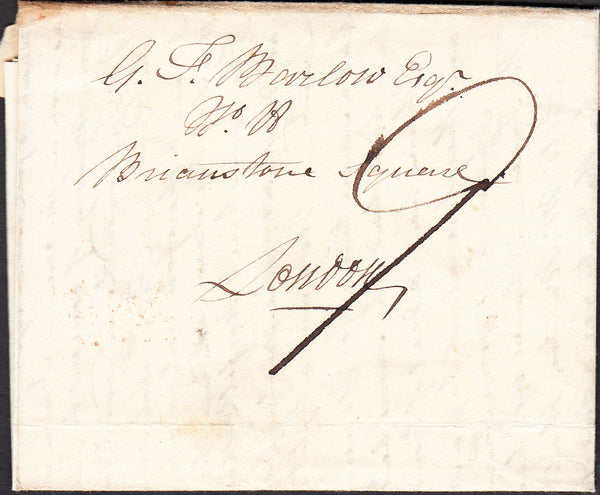 G. F. Barlow Esqr.
No. 8
Brianstone Square
9
London